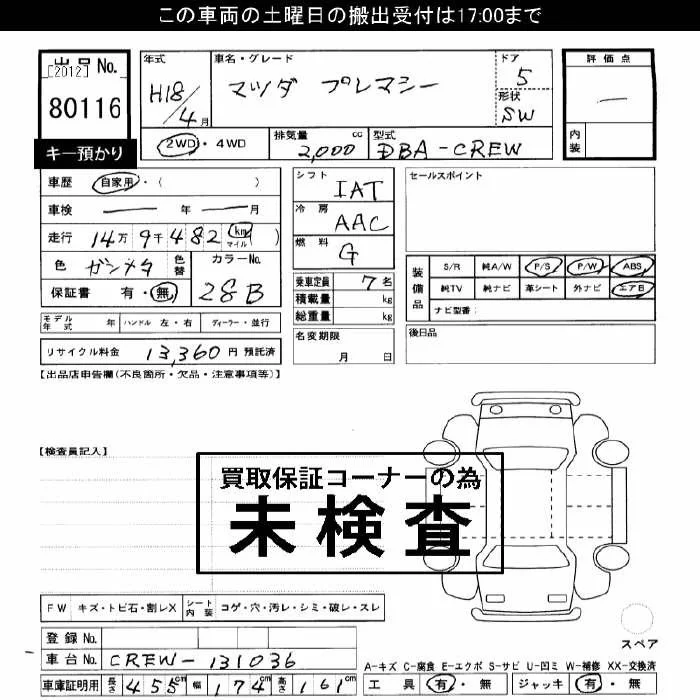 この車両の土曜日の搬出受付は17:00まで
出品 No.
[2012]
80116
キー預かり
年式
H18/4月
車名・グレード
マツダ プレマシー
ドア
5
形状
SW
評価点
—
内装
2WD・4WD
排気量 cc
2,000
型式
DBA-CREW
車歴 自家用・( )
車検 年 月
走行 14万9千482 (km マイル)
色 ガンメタ 色替
カラーNo.
28B
保証書 有・無
シフト
IAT
冷房
AAC
燃料
G
乗車定員 7名
積載量 kg
総重量 kg
名変期限
月 日
セールスポイント
装備品
S/R 純A/W P/S P/W ABS
純TV 純ナビ 革シート 外ナビ エアB
ナビ型番:
後日品
モデル年式 年 ハンドル 左・右 ディーラー・並行
リサイクル料金 13,360円 預託済
【出品店申告欄(不良箇所・欠品・注意事項等)】
【検査員記入】
買取保証コーナーの為
未検査
FW キズ・トビ石・割レX シート内装 コゲ・穴・汚レ・シミ・破レ・スレ
登録 No.
車台 No. CREW-131036
車庫証明用 長さ 455cm 幅 174cm 高さ 161cm
スペア
A-キズ C-腐食 E-エクボ S-サビ U-凹ミ W-補修 XX-交換済
工具 有・無 ジャッキ 有・無